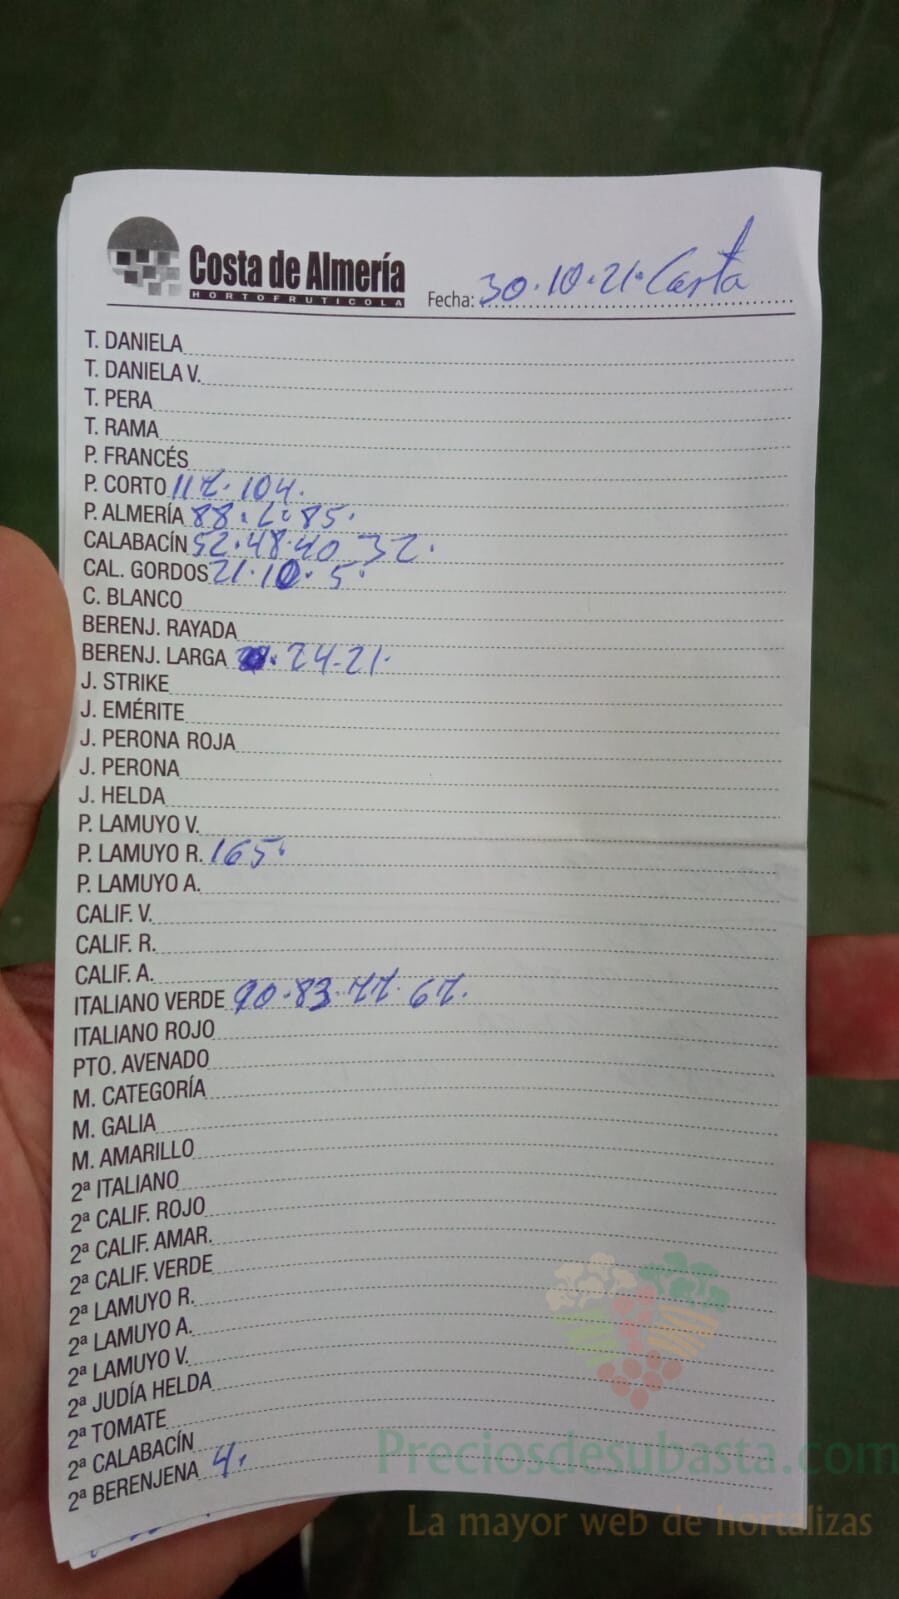 Costa de Almería
HORTOFRUTICOLA
Fecha: 30.10.21. Costa
T. DANIELA
T. DANIELA V.
T. PERA
T. RAMA
P. FRANCÉS
P. CORTO 117. 104.
P. ALMERÍA 88. 85.
CALABACÍN 52.48.40 32.
CAL. GORDOS 21.10. 5.
C. BLANCO
BERENJ. RAYADA
BERENJ. LARGA 24-21.
J. STRIKE
J. EMÉRITE
J. PERONA ROJA
J. PERONA
J. HELDA
P. LAMUYO V.
P. LAMUYO R. 165.
P. LAMUYO A.
CALIF. V.
CALIF. R.
CALIF. A.
ITALIANO VERDE 90.83.77. 67.
ITALIANO ROJO
PTO. AVENADO
M. CATEGORÍA
M. GALIA
M. AMARILLO
2ª ITALIANO
2ª CALIF. ROJO
2ª CALIF. AMAR.
2ª CALIF. VERDE
2ª LAMUYO R.
2ª LAMUYO A.
2ª LAMUYO V.
2ª JUDÍA HELDA
2ª TOMATE
2ª CALABACÍN
2ª BERENJENA 4.
Preciosdesubasta.com
La mayor web de hortalizas